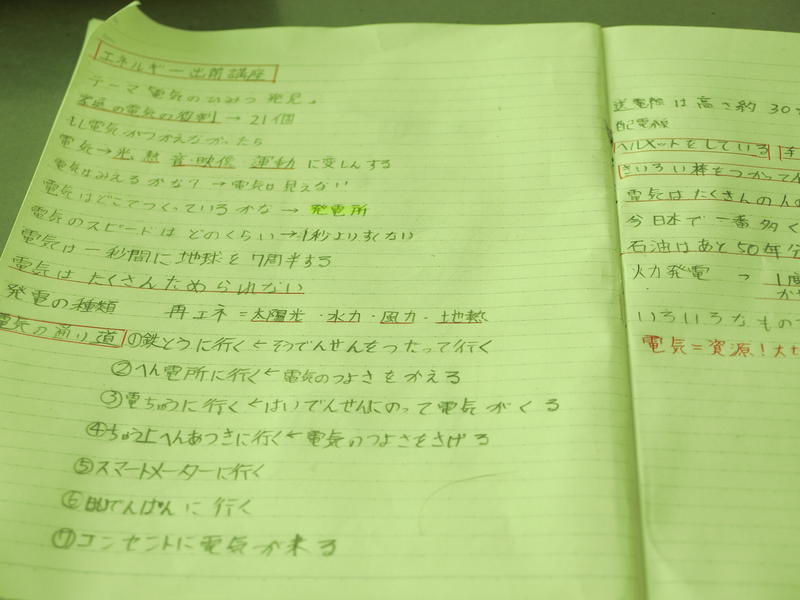 エネルギー出前講座
テーマ 電気のひみつ発見。
家庭の電気の → 21個
もし電気がつかえなかったら
電気→光、熱 音・映像 運動 に変しんする
電気はみえるかな? → 電気は見えない
電気はどこでつくっているかな → 発電所
電気のスピードは どのくらい → 1秒よりすくない
電気は一秒間に地球を7周半する
電気は たくさんためられない
発電の種類 再エネ = 太陽光・水力・風力・地熱
電気の通り道 ①鉄とうに行く ← そうでんせんをつたって行く
②へん電所に行く ← 電気のつよさをかえる
③電ちゅうに行く ← はいでんせんにのって電気がくる
④ちゅう上へんあつきに行く ← 電気のつよさをさげる
⑤スマートメーターに行く
⑥ぶんでんばんに行く
⑦コンセントに電気が来る
送電線は高さ約30
配電線
ヘルメットをしている
きいろい棒をつかって
電気はたくさんの人の
今日本で一番多く
石油はあと50年分
火力発電 → 1度
いろいろなもの
電気=資源!大